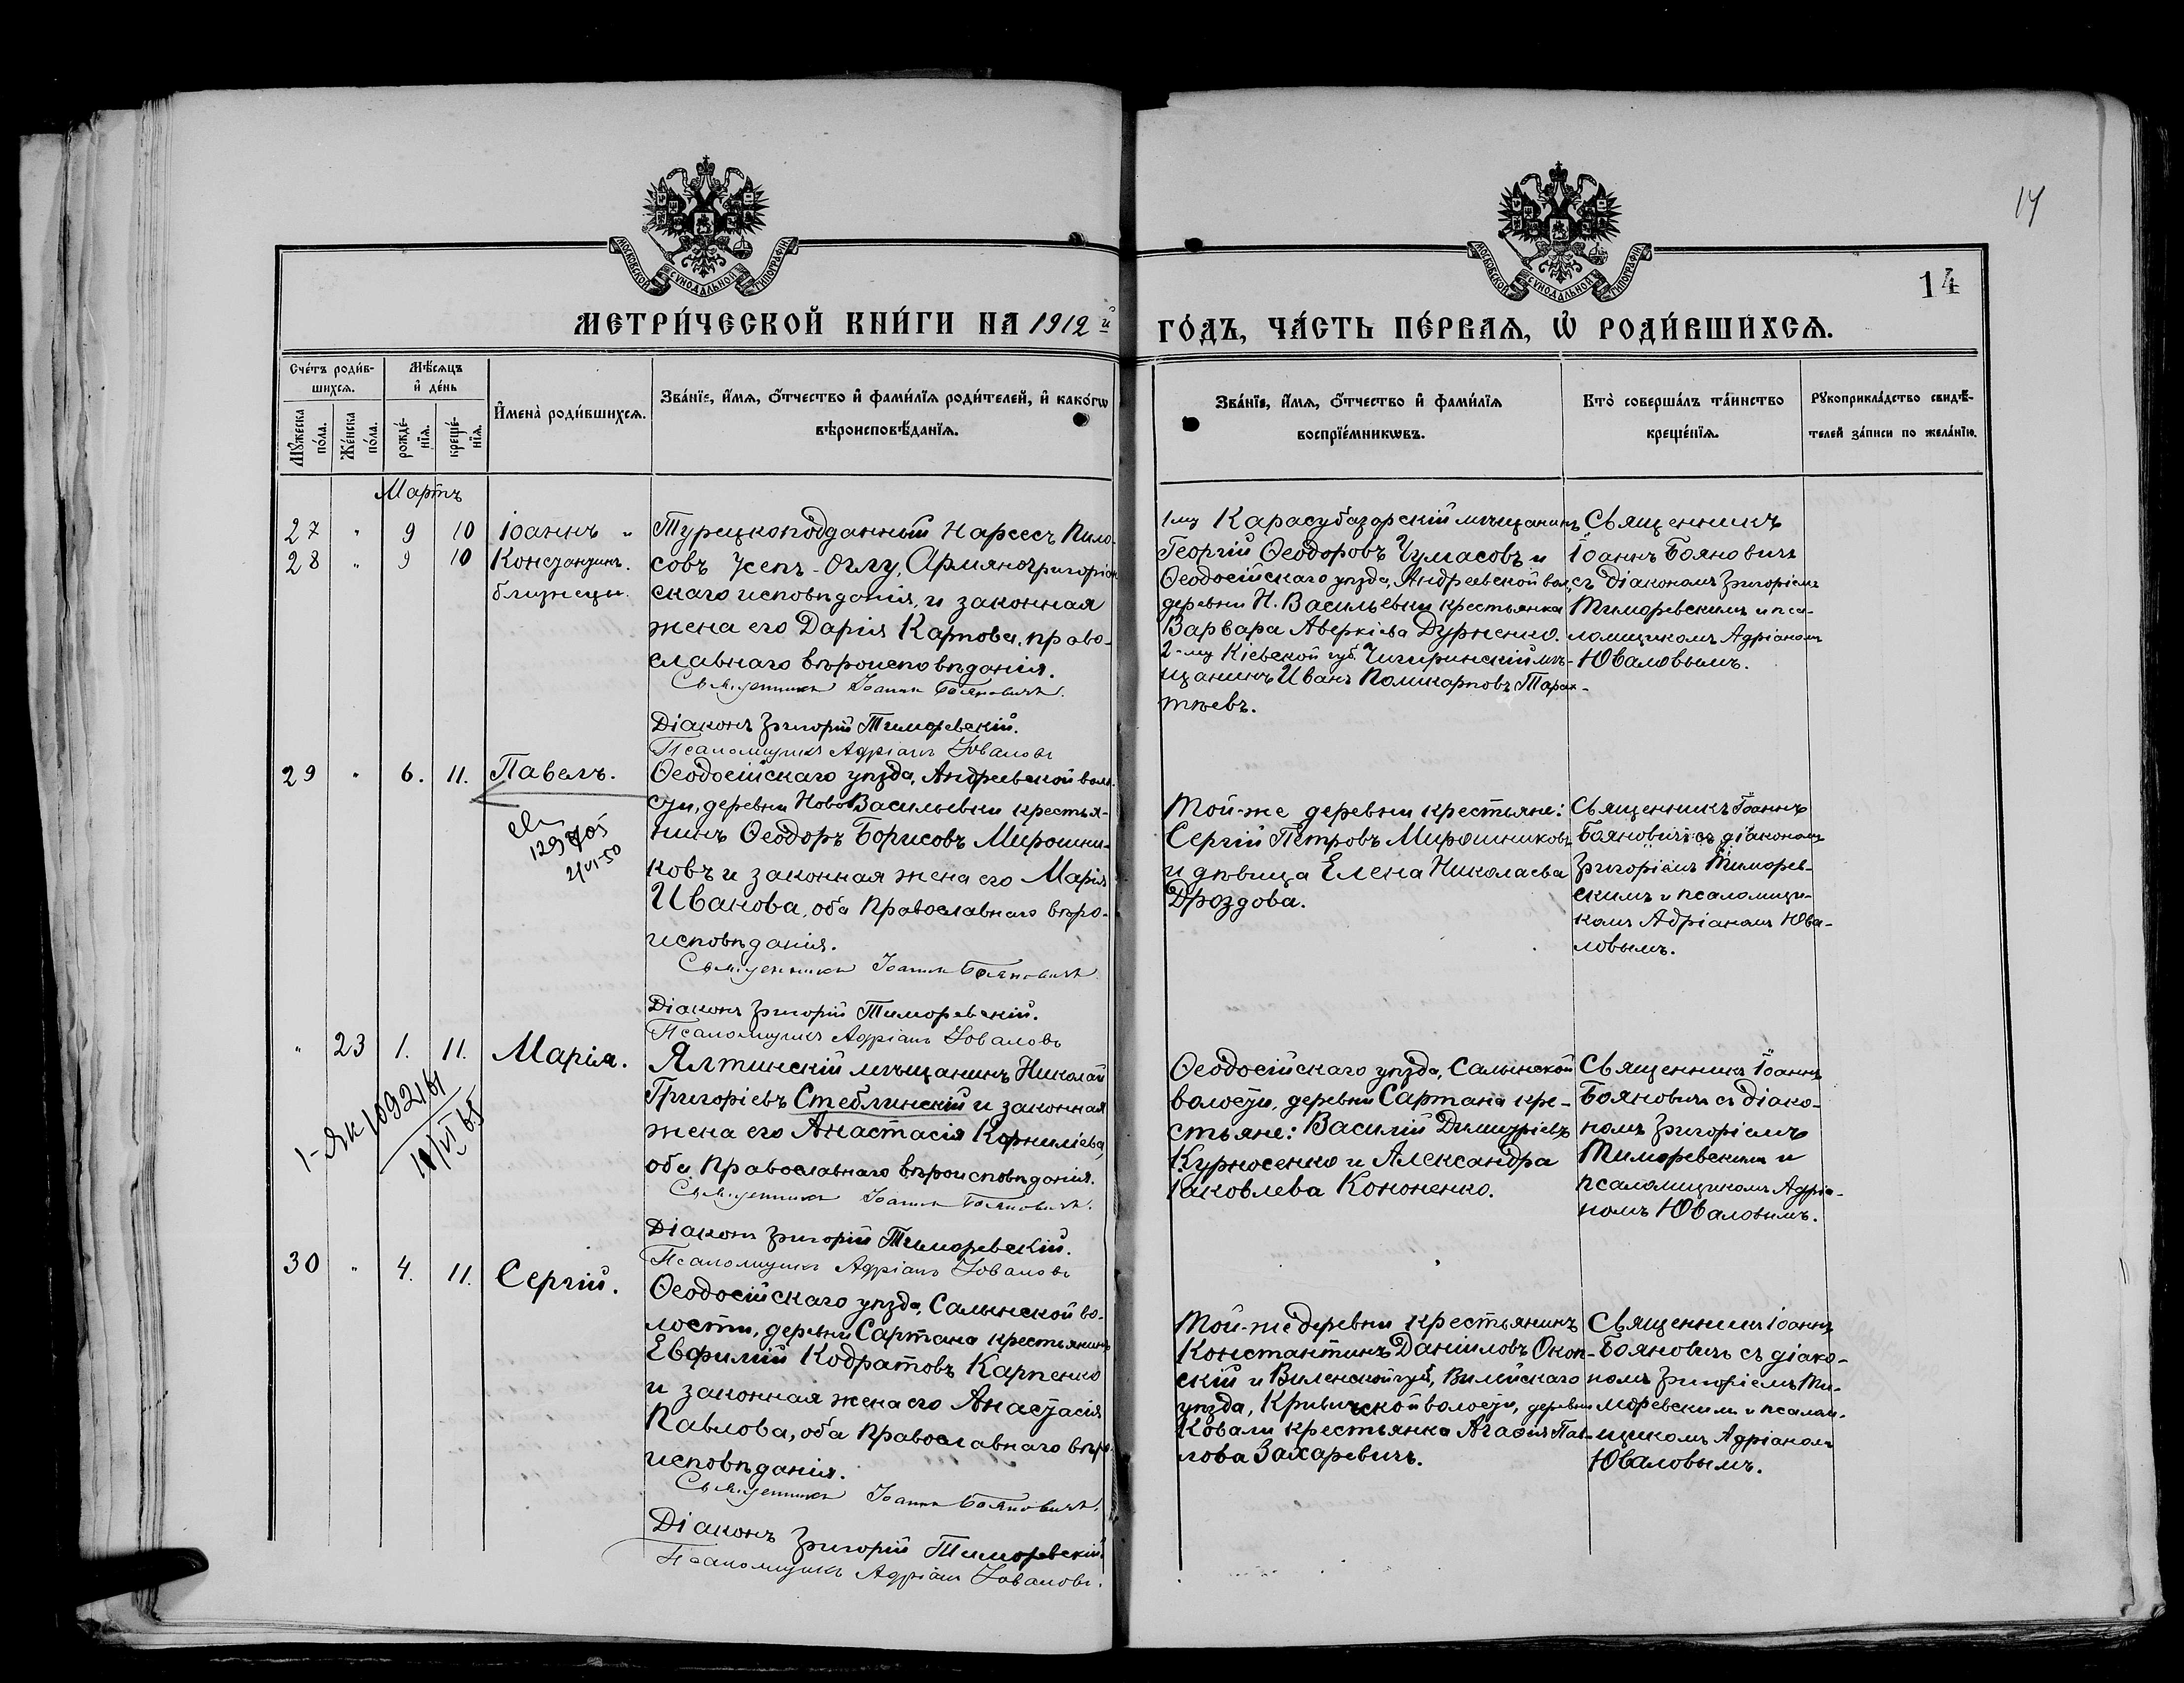 14
14
МОСКОВСКОЙ СѴНОДАЛЬНОЙ ТИПОГРАФІИ
МОСКОВСКОЙ СѴНОДАЛЬНОЙ ТИПОГРАФІИ
МЕТРИ́ЧЕСКОЙ КНИ́ГИ НА 1912 й
ГО́ДЪ, ЧА́СТЬ ПЕ́РВАѦ, Ѡ҆ РОДИ́ВШИХСѦ.
Сче́тъ роди́в-
шихсѧ.
Мꙋжеска
по́ла.
Же́нска
по́ла.
Мѣ́сѧцъ
и҆ де́нь
рожде́-
нїѧ.
креще́-
нїѧ.
И҆мена̀ роди́вшихсѧ.
Зва́нїе, и҆́мѧ, ѻ҆́тчество и҆ фами́лїѧ роди́телей, и҆ како́гѡ
вѣроисповѣ́данїѧ.
Зва́нїе, и҆́мѧ, ѻ҆́тчество и҆ фами́лїѧ
воспрїе́мникѡвъ.
Кто̀ соверша́лъ та́инство
креще́нїѧ.
Рꙋкоприкла́дство свидѣ́-
телей за́писи по жела́нїю.
Мартъ
27 " 9 10 Іоаннъ "
28 " 9 10 Константинъ.
близнецы.
Турецкоподданный Нарсесъ Пило-
совъ Усеп-Оглу, Армяногригоріан
скаго исповѣданія, и законная
жена его Дарія Карпова, право-
славнаго вѣроисповѣданія.
Священникъ Іоаннъ Бояновичъ.
Діаконъ Григорій Тиморевскій.
Псаломщикъ Адріанъ Юваловъ
1му Карасубазарскій мѣщанинъ
Георгій Ѳеодоровъ Чумасовъ и
Ѳеодосійскаго уѣзда, Андреевской вол.,
деревни Н. Васильевки крестьянка
Варвара Аверкіева Дурненко.
2-му Кіевской губ. Чигиринскій мѣ-
щанинъ Иванъ Поликарповъ Таран-
тѣевъ.
Священникъ
Іоаннъ Бояновичъ
съ діакономъ Григоріемъ
Тиморевскимъ и пса-
ломщикомъ Адріаномъ
Юваловымъ.
29 " 6. 11. Павелъ.
2/VI-50
Ѳеодосійскаго уѣзда, Андреевской воло-
сти, деревни НовоВасильевки крестья-
нинъ Ѳеодоръ Борисовъ Мирошни-
ковъ и законная жена его Марія
Иванова, оба православнаго вѣро-
исповѣданія.
Священникъ Іоаннъ Бояновичъ
Діаконъ Григорій Тиморевскій.
Псаломщикъ Адріанъ Юваловъ
Той-же деревни крестьяне:
Сергій Петровъ Мирошниковъ
и дѣвица Елена Николаева
Дроздова.
Священникъ Іоаннъ
Бояновичъ съ діакономъ
Григоріемъ Тиморев-
скимъ и псаломщи-
комъ Адріаномъ Юва-
ловымъ.
" 23 1. 11. Марія.
1-ЯК 1092161
18/VI 65
Ялтинскій мѣщанинъ Николай
Григоріевъ Стеблинскій и законная
жена его Анастасія Корниліева,
оба православнаго вѣроисповѣданія.
Священникъ Іоаннъ Бояновичъ.
Діаконъ Григорій Тиморевскій.
Псаломщикъ Адріанъ Юваловъ
Ѳеодосійскаго уѣзда, Салынской
волости, деревни Сартана кре-
стьяне: Василій Димитріевъ
Курносенко и Александра
Іаковлева Кононенко.
Священникъ Іоаннъ
Бояновичъ съ діако-
номъ Григоріемъ
Тиморевскимъ и
псаломщикомъ Адріа-
номъ Юваловымъ.
30 " 4. 11. Сергій.
Ѳеодосійскаго уѣзда, Салынской во-
лости, деревни Сартана крестьянинъ
Евфимій Кодратовъ Карпенко
и законная жена его Анастасія
Павлова, оба православнаго вѣро-
исповѣданія.
Священникъ Іоаннъ Бояновичъ.
Діаконъ Григорій Тиморевскій
Псаломщикъ Адріанъ Юваловъ.
Той-же деревни крестьянинъ
Константинъ Даніиловъ Окон-
скій и Виленской губ, Вилейскаго
уѣзда, Кривичской волости, деревни
Ковали крестьянка Агафія Пав-
лова Захаревичъ.
Священникъ Іоаннъ
Бояновичъ съ діако-
номъ Григоріемъ Ти-
моревскимъ и псалом-
щикомъ Адріаномъ
Юваловымъ.